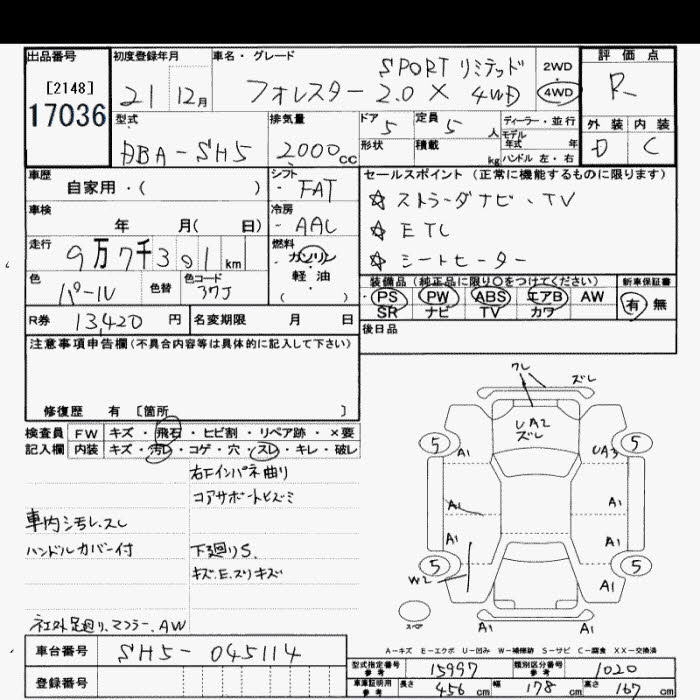 出品番号 初度登録年月 車名・グレード 2WD 評価点
[2148] 21 12月 フォレスター SPORTリミテッド 2.0X 4WD 4WD R
17036 型式 排気量 ドア 定員 ディーラー・並行 外装 内装
DBA-SH5 2000cc 5 5人 モデル年式 年 D C
形状 積載 kg ハンドル 左・右
車歴 シフト セールスポイント(正常に機能するものに限ります)
自家用・( ) FAT ☆ストラーダナビ・TV
車検 冷房 ☆ETC
年 月( 日) AAC ☆シートヒーター
走行 燃料
9万7千301km ガソリン・軽油( )
色 色替 色コード 装備品(純正品に限り○をつけてください) 新車保証書
パール 37J PS PW ABS エアB AW 有 無
SR ナビ TV カワ
R券 13,420円 名変期限 月 日 後日品
注意事項申告欄(不具合内容等は具体的に記入して下さい)
修復歴 有 [箇所 ]
検査員 FW キズ・飛石・ヒビ割・リペア跡・×要
記入欄 内装 キズ・汚レ・コゲ・穴・スレ・キレ・破レ
右Fインパネ曲り
コアサポートヒズミ
車内汚レ、スレ
ハンドルカバー付 下廻りS.
キズ.E.スリキズ
社外足廻り、マフラー、AW
クレ ズレ
UA2
ズレ
5 5
A1 UA3
A1 A1
A1 A1
5 5
W2 A1
A1 A1
スペア
A-キズ E-エクボ U-凹み W-補修跡 S-サビ C-腐食 XX-交換済
車台番号 SH5-045114
型式指定番号 参考 15997 類別区分番号 参考 1020
登録番号 車庫証明用 参考 長さ 456cm 幅 178cm 高さ 167cm